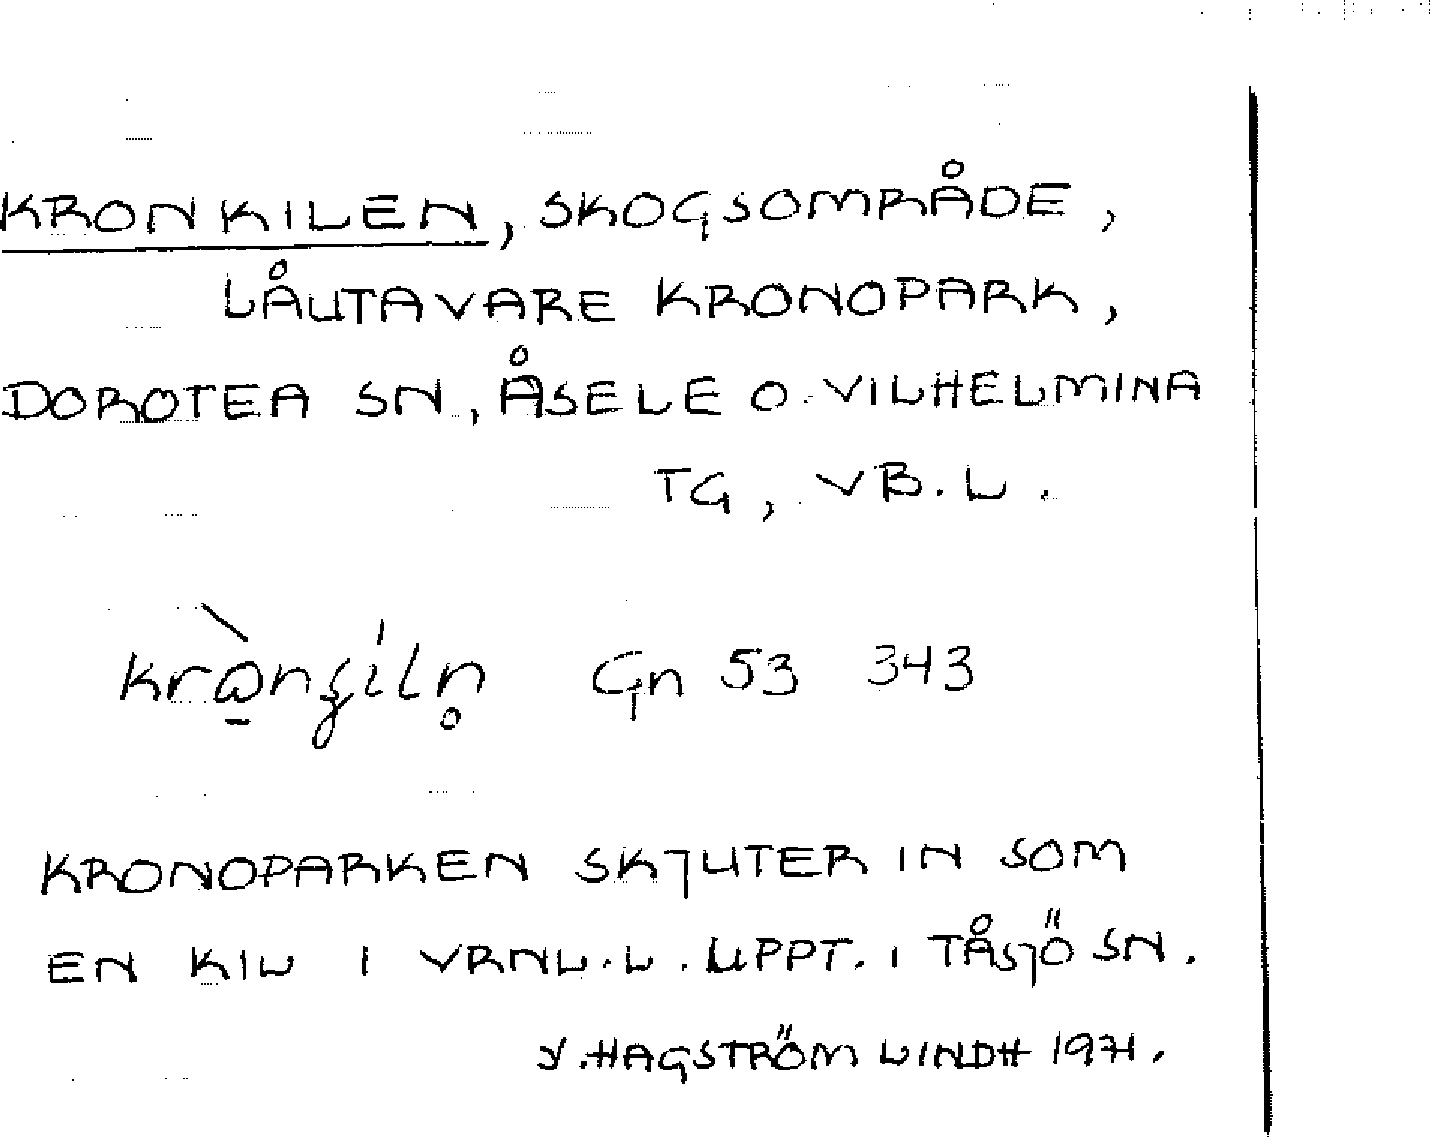 KRONKILEN, SKOGSOMRÅDE,
LÅUTAVARE KRONOPARK,
DOROTEA SN, ÅSELE O. VILHELMINA
TG, VB. L.
Gn 53 343
KRONOPARKEN SKJUTER IN SOM
EN KIL I VRNL.L. UPPT. I TÅSJÖ SN.
Y. HAGSTRÖM LINDH 1971.